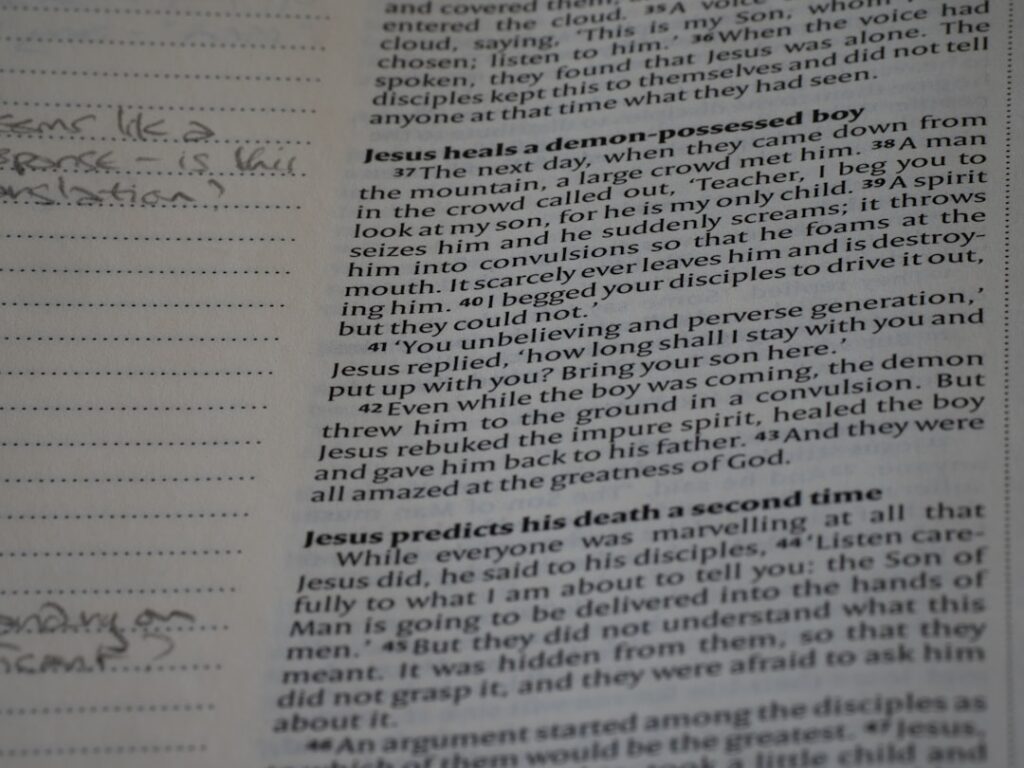 like a
– is this
?
on
?
and covered them,
entered the cloud. 35 A voice
cloud, saying, ‘This is my Son, whom
chosen; listen to him.’ 36 When the voice had
spoken, they found that Jesus was alone. The
disciples kept this to themselves and did not tell
anyone at that time what they had seen.
Jesus heals a demon-possessed boy
37 The next day, when they came down from
the mountain, a large crowd met him. 38 A man
in the crowd called out, ‘Teacher, I beg you to
look at my son, for he is my only child. 39 A spirit
seizes him and he suddenly screams; it throws
him into convulsions so that he foams at the
mouth. It scarcely ever leaves him and is destroy-
ing him. 40 I begged your disciples to drive it out,
but they could not.’
41 ‘You unbelieving and perverse generation,’
Jesus replied, ‘how long shall I stay with you and
put up with you? Bring your son here.’
42 Even while the boy was coming, the demon
threw him to the ground in a convulsion. But
Jesus rebuked the impure spirit, healed the boy
and gave him back to his father. 43 And they were
all amazed at the greatness of God.
Jesus predicts his death a second time
While everyone was marvelling at all that
Jesus did, he said to his disciples, 44 ‘Listen care-
fully to what I am about to tell you: the Son of
Man is going to be delivered into the hands of
men.’ 45 But they did not understand what this
meant. It was hidden from them, so that they
did not grasp it, and they were afraid to ask him
about it.
46 An argument started among the disciples as
to which of them would be the greatest. 47 Jesus,
took a little child and